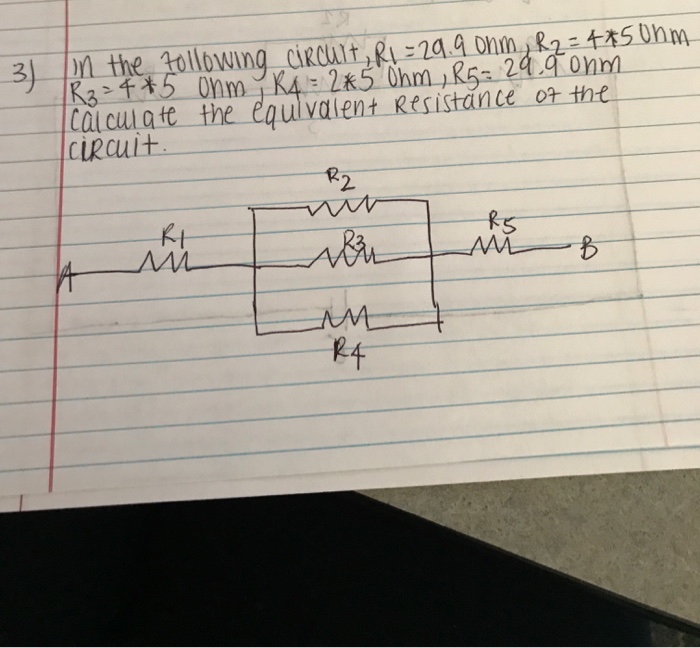 3) In the following circuit, R1 = 29.9 Ohm, R2 = 4*5 Ohm
R3 = 4*5 Ohm, R4 = 2*5 Ohm, R5 = 29.9 Ohm
Calculate the equivalent Resistance of the
circuit.
R2
R1
R3
R5
A
B
R4